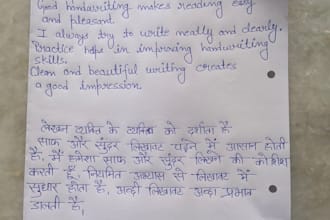 Good handwriting makes reading easy
and pleasant.
I always try to write neatly and clearly.
Practice helps in improving handwriting
skills.
Clean and beautiful writing creates
a good impression.
लेखन व्यक्ति के व्यक्तित्व को दर्शाता है
साफ और सुंदर लिखावट पढ़ने में आसान होती
है, मैं हमेशा साफ और सुंदर लिखने की कोशिश
करती हूँ, नियमित अभ्यास से लिखावट में
सुधार होता है, अच्छी लिखावट अच्छा प्रभाव
डालती है,